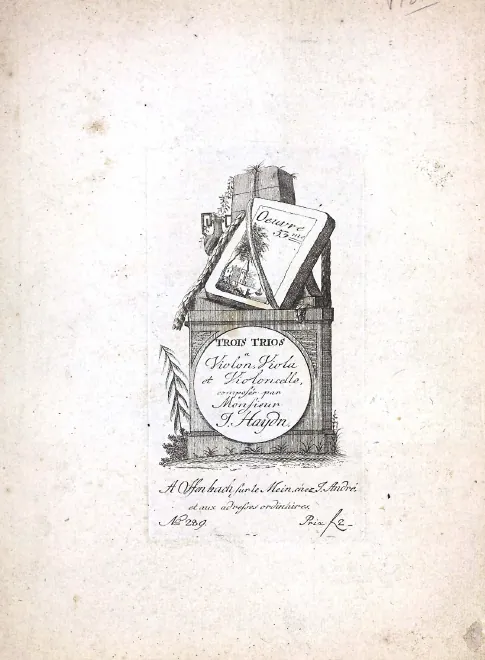 Oeuvre
53me
TROIS TRIOS
a
Violon, Viola
et Violoncello,
composés par
Monsieur
J. Haydn.
A Offenbach sur le Mein, chez J. André,
et aux adresses ordinaires.
No. 289.
Prix f 2 -